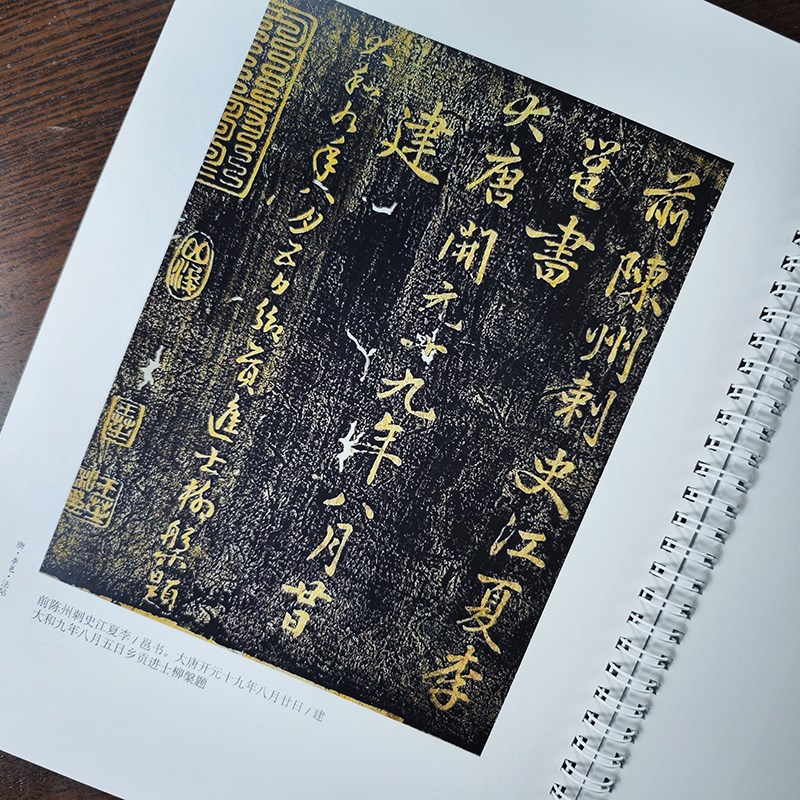 前陳州刺史江夏李
邕書
大唐開元十九年八月廿日
建
大和九年八月五日鄉貢進士柳槃題
前陈州刺史江夏李/邕书。大唐开元十九年八月廿日/建
大和九年八月五日乡贡进士柳槃题